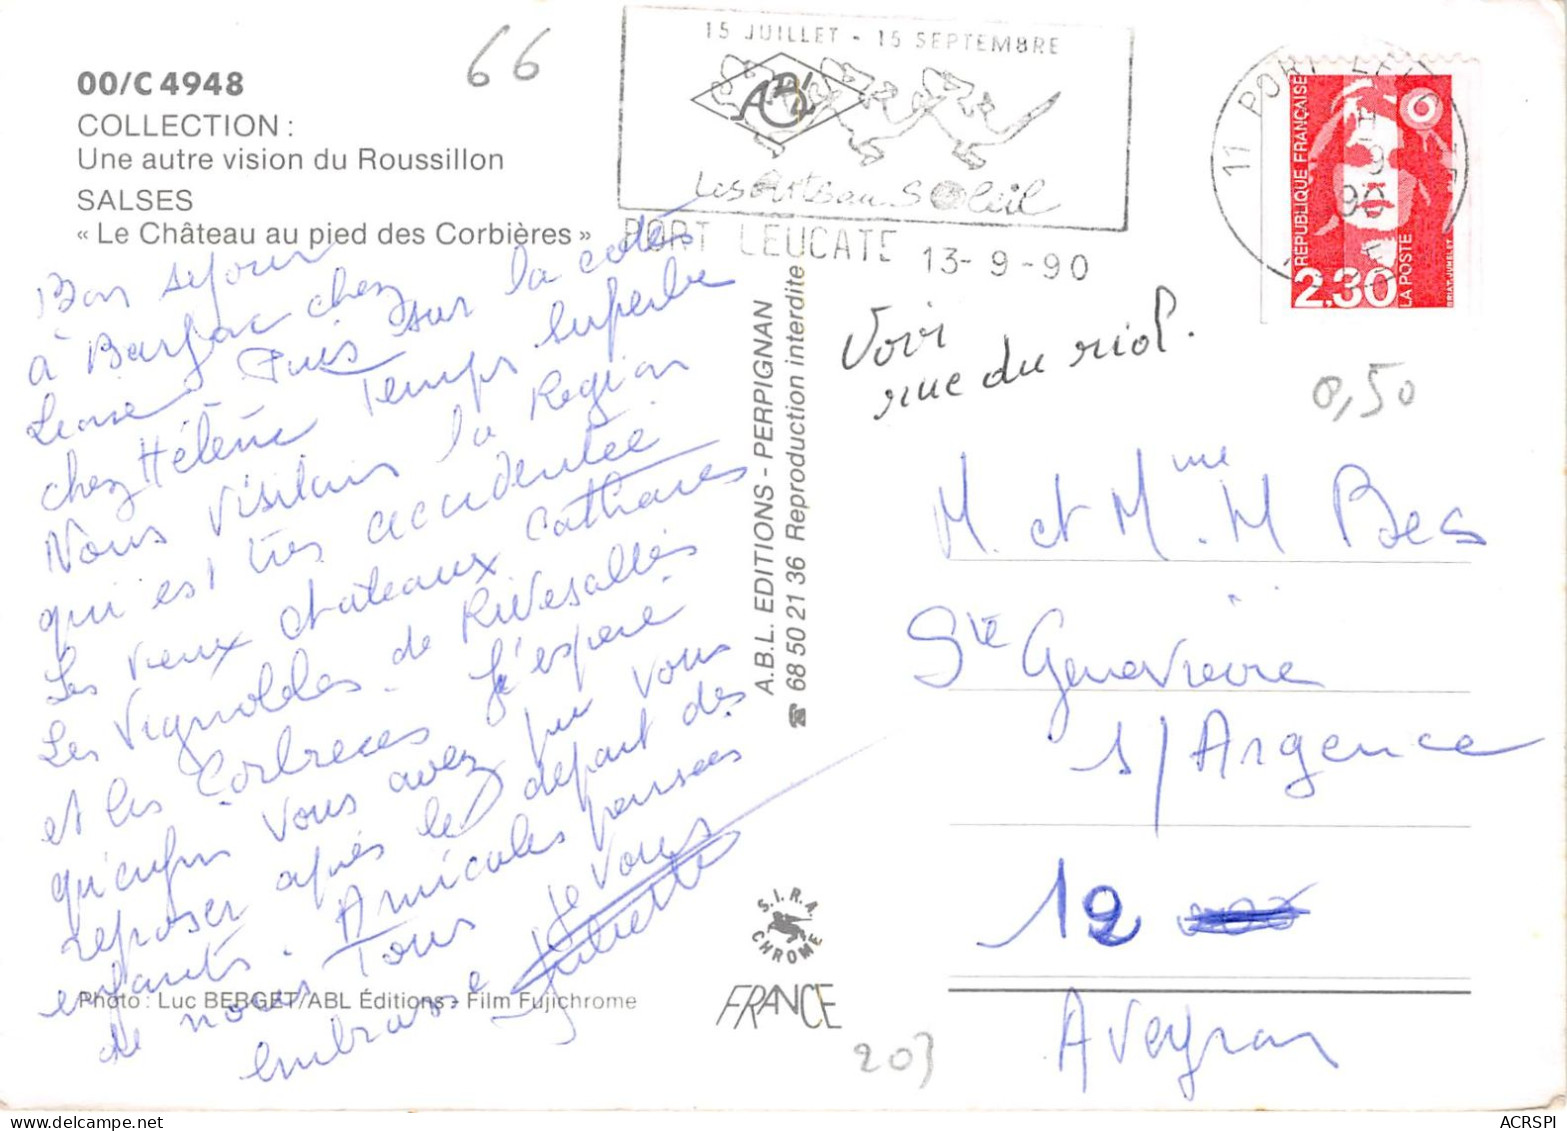 00/C 4948
COLLECTION :
Une autre vision du Roussillon
SALSES
« Le Château au pied des Corbières »
66
15 JUILLET - 15 SEPTEMBRE
ABL
Les Arts au Soleil
PORT LEUCATE 13-9-90
11 PORT LEUCATE
REPUBLIQUE FRANÇAISE
2.30
LA POSTE
BRIAT.JUMELET
Bon séjour
à Barjac chez
puis sur la côte
chez Hélène Temps superbe
Nous visitons la Region
qui est très accidentée
Les vieux chateaux cathares
Les Vignobles de Rivesaltes
et les Corbieres J'espere
qu'enfin vous avez pu vous
reposer après le départ des
enfants. Amicales pensées
de nous Tous Je vous
embrasse Juliette
Photo : Luc BERGET/ABL Éditions - Film Fujichrome
A.B.L. EDITIONS - PERPIGNAN
☎ 68 50 21 36 Reproduction interdite
S.I.R.A. CHROME
FRANCE
Voir
rue du riol.
0,50
M. et Mme M Bes
Ste Genevieve
s/Argence
12
Aveyron
203
ACRSPI